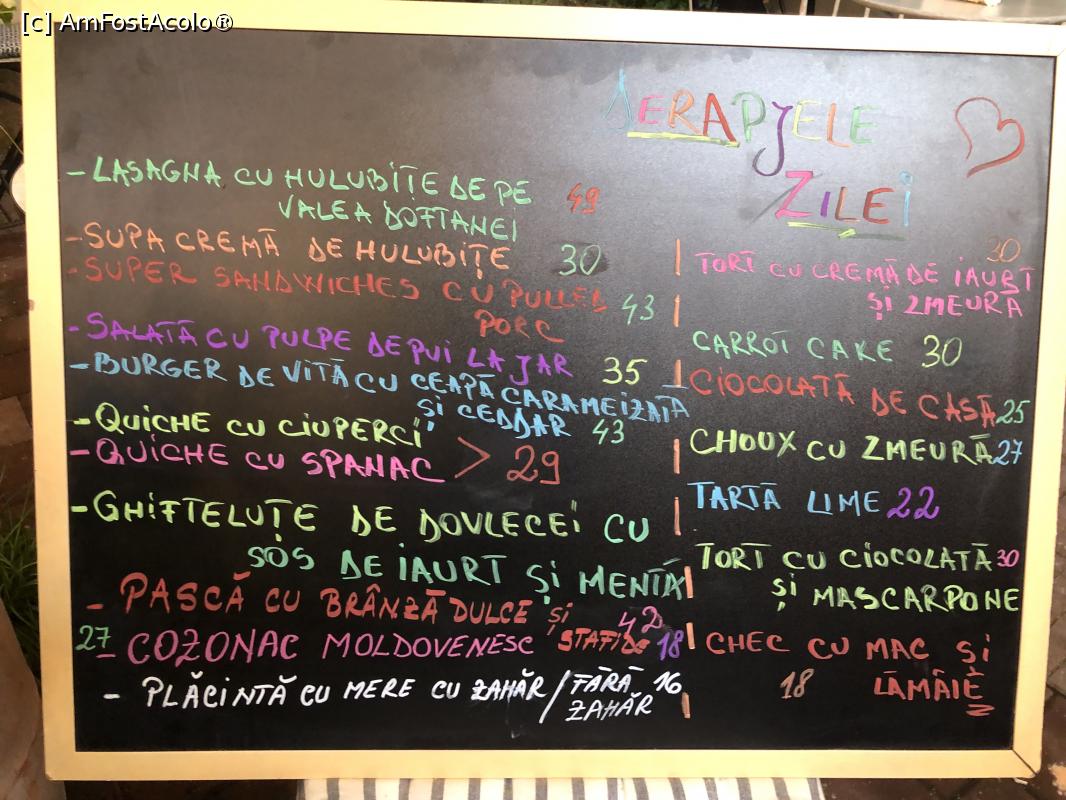 [c] AmFostAcolo®
ȘERAPJELE
ZILEI
- LASAGNA CU HULUBIȚE DE PE
VALEA DOFTANEI 49
- SUPA CREMĂ DE HULUBIȚE 30
- SUPER SANDWICHES CU PULLED
PORC 43
- SALATĂ CU PULPE DE PUI LA JAR 35
- BURGER DE VITĂ CU CEAPĂ CARAMEIZATĂ
ȘI CEDDAR 43
- QUICHE CU CIUPERCI
- QUICHE CU SPANAC > 29
- GHIFTELUȚE DE DOVLECEI CU
SOS DE IAURT ȘI MENTĂ
- PASCĂ CU BRÂNZĂ DULCE ȘI 42
STAFIDE 18
27 - COZONAC MOLDOVENESC
- PLĂCINTĂ CU MERE CU ZAHĂR / FĂRĂ 16
ZAHĂR
30
TORT CU CREMĂ DE IAURT
ȘI ZMEURĂ
CARROT CAKE 30
CIOCOLATĂ DE CASĂ 25
CHOUX CU ZMEURĂ 27
TARTĂ LIME 22
TORT CU CIOCOLATĂ 30
ȘI MASCARPONE
CHEC CU MAC ȘI
18 LĂMÂIE